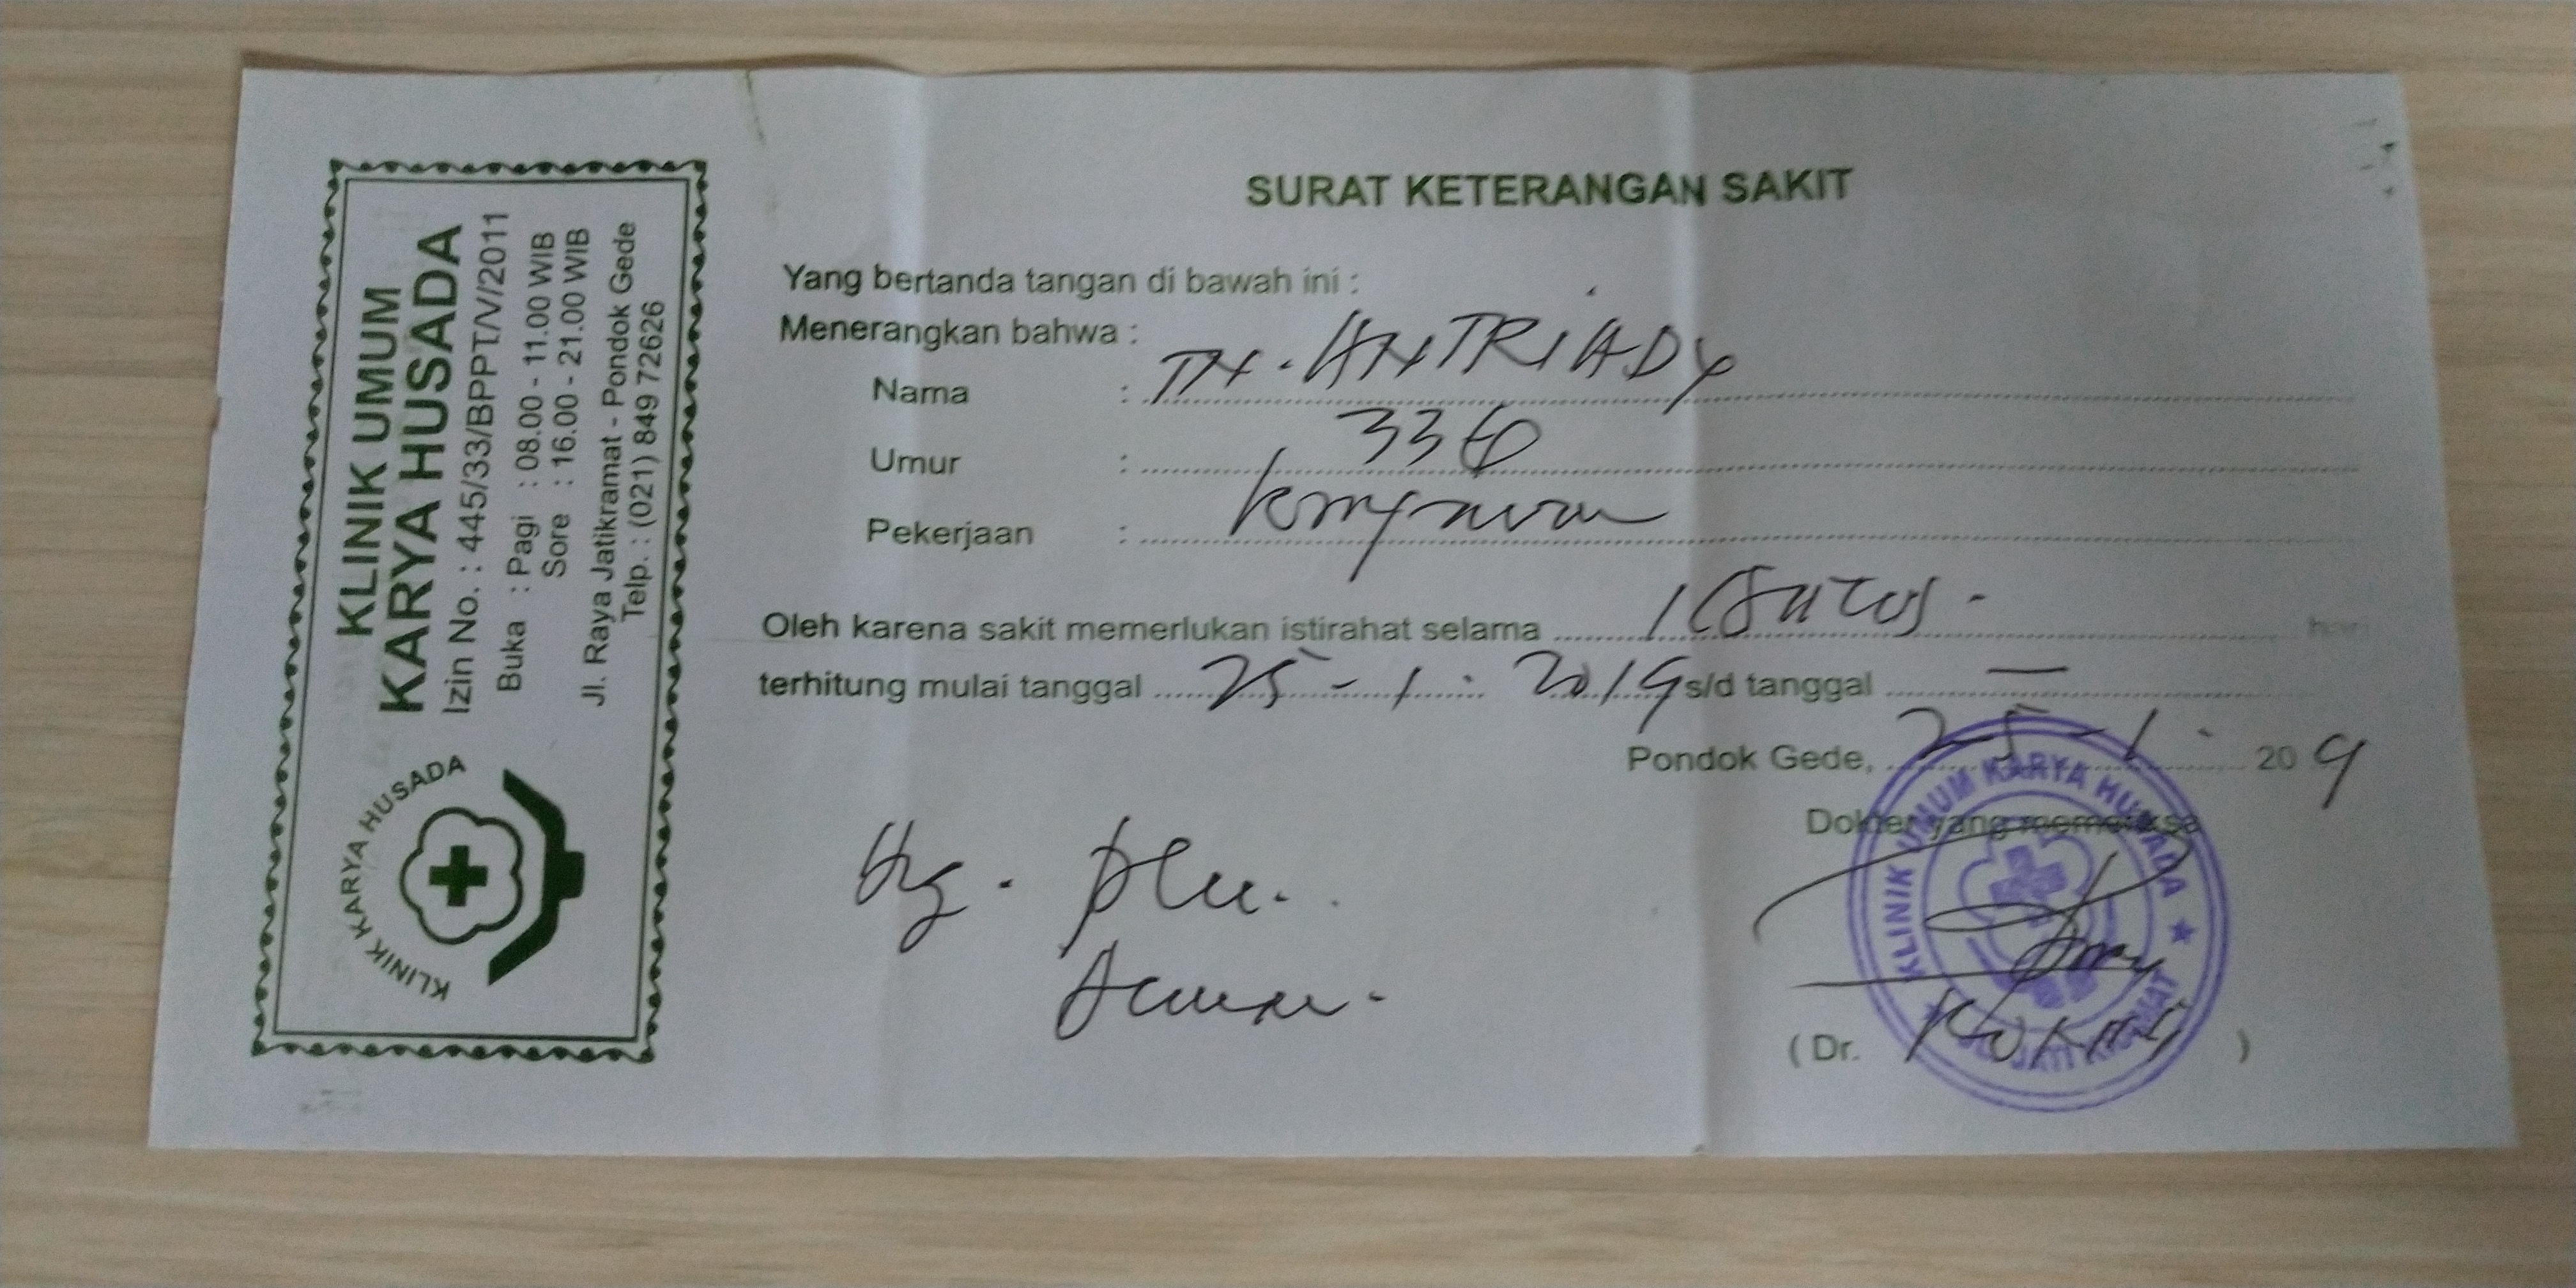 KLINIK UMUM
KARYA HUSADA
Izin No. : 445/33/BPPT/V/2011
Buka : Pagi : 08.00 - 11.00 WIB
Sore : 16.00 - 21.00 WIB
Jl. Raya Jatikramat - Pondok Gede
Telp. : (021) 849 72626
KLINIK KARYA HUSADA
SURAT KETERANGAN SAKIT
Yang bertanda tangan di bawah ini :
Menerangkan bahwa :
Nama :
Umur : 33
Pekerjaan : Karyawan
Oleh karena sakit memerlukan istirahat selama 1 (SATU) hari
terhitung mulai tanggal 25 - 1 - 2019 s/d tanggal —
Pondok Gede, 25 - 1 - 20 19
Dokter yang memeriksa
KLINIK UMUM KARYA HUSADA
( Dr. )